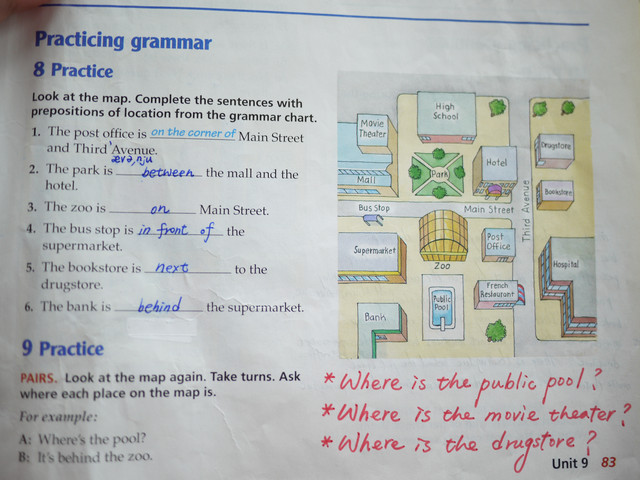 Practicing grammar
8 Practice
Look at the map. Complete the sentences with
prepositions of location from the grammar chart.
1. The post office is on the corner of Main Street
and Third Avenue.
ævə,nju
2. The park is between the mall and the
hotel.
3. The zoo is on Main Street.
4. The bus stop is in front of the
supermarket.
5. The bookstore is next to the
drugstore.
6. The bank is behind the supermarket.
9 Practice
PAIRS. Look at the map again. Take turns. Ask
where each place on the map is.
For example:
A: Where's the pool?
B: It's behind the zoo.
High
School
Movie
Theater
Drugstore
Park
Hotel
Mall
Bookstore
Bus Stop
Main Street
Third Avenue
Supermarket
Zoo
Post
Office
Hospital
French
Restaurant
Public
Pool
Bank
* Where is the public pool?
* Where is the movie theater?
* Where is the drugstore?
Unit 9 83